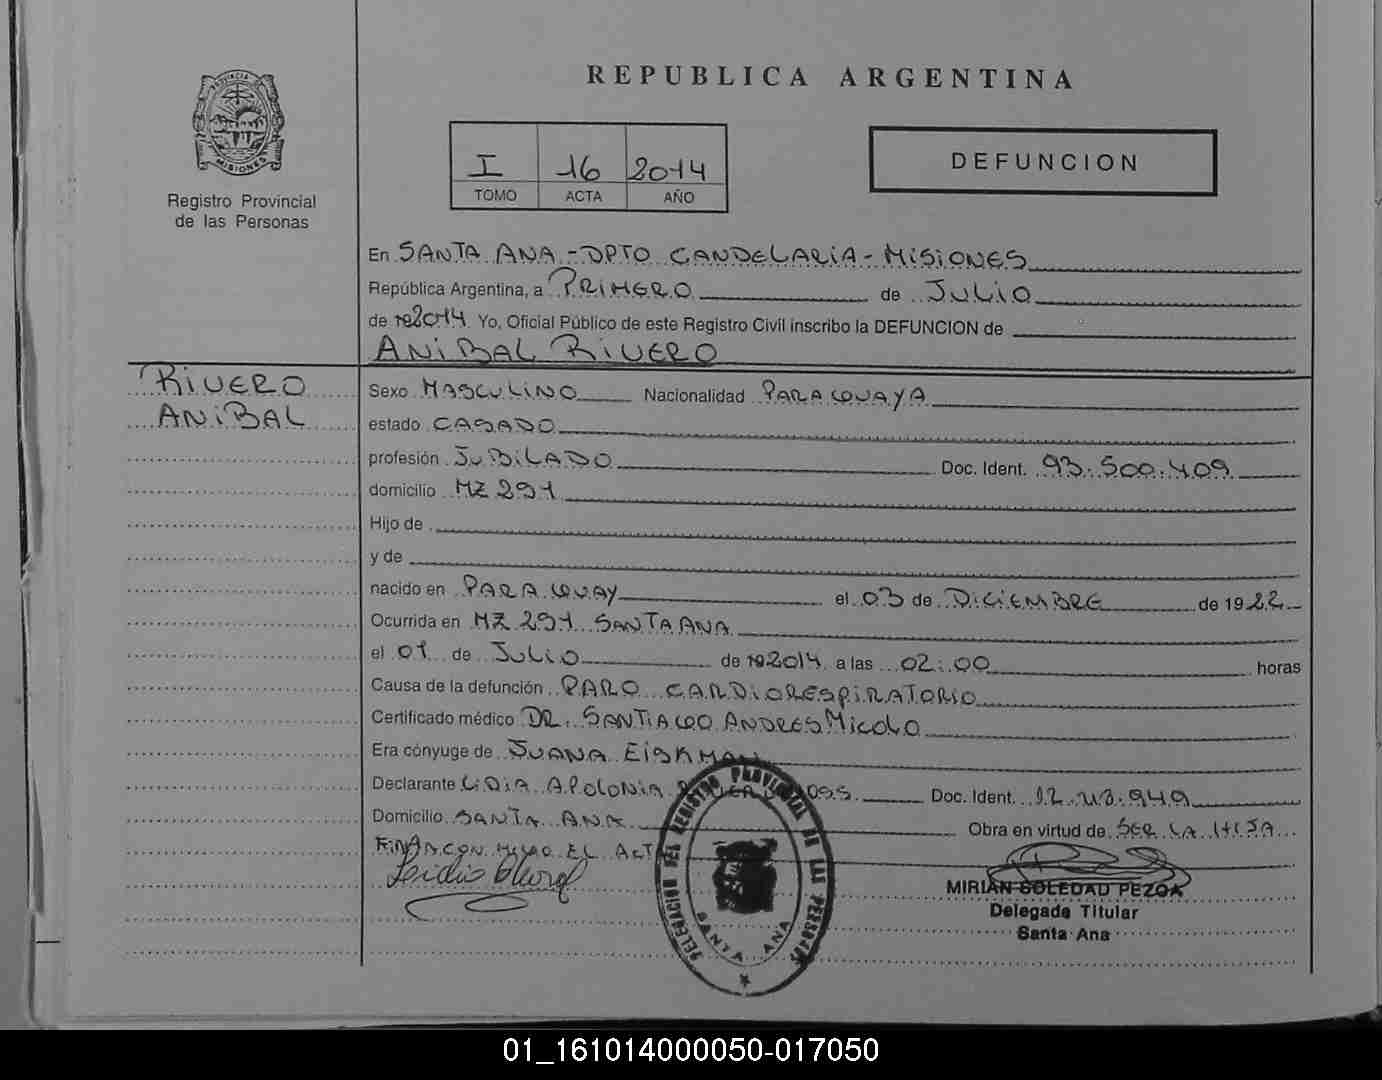 REPUBLICA ARGENTINA
PROVINCIA DE MISIONES
Registro Provincial
de las Personas
I 16 2014
TOMO ACTA AÑO
DEFUNCION
En SANTA ANA - DPTO CANDELARIA - MISIONES
República Argentina, a PRIMERO de JULIO
de 2014. Yo, Oficial Público de este Registro Civil inscribo la DEFUNCION de
ANIBAL RIVERO
RIVERO
ANIBAL
Sexo MASCULINO Nacionalidad PARAGUAYA
estado CASADO
profesión JUBILADO Doc. Ident. 93.500.409
domicilio MZ 291
Hijo de
y de
nacido en PARAGUAY el 03 de DICIEMBRE de 1922
Ocurrida en MZ 291 SANTA ANA
el 01 de JULIO de 2014 a las 02:00 horas
Causa de la defunción PARO CARDIORESPIRATORIO
Certificado médico DR. SANTIAGO ANDRES MICOLO
Era cónyuge de JUANA EISKMAN
Declarante LIDIA APOLONIA Doc. Ident. 12.413.949
Domicilio SANTA ANA Obra en virtud de SER LA HIJA
FIRMA CONMIGO EL ACTA
MIRIAN SOLEDAD PEZOA
Delegada Titular
Santa Ana
DELEGACION DEL REGISTRO PROVINCIAL DE LAS PERSONAS
SANTA ANA
01_161014000050-017050